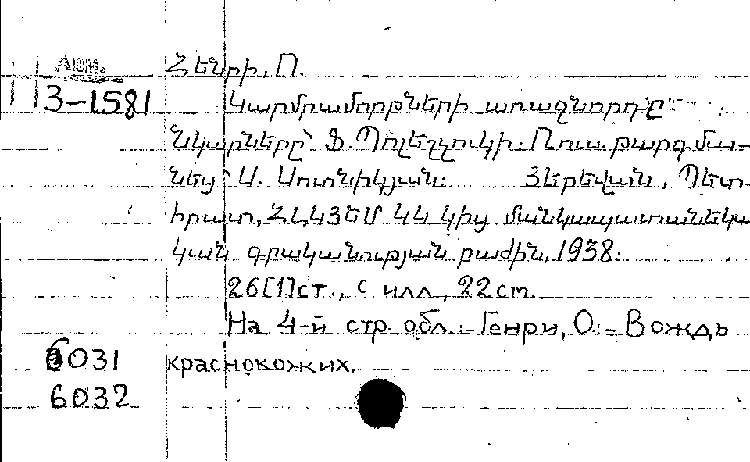 Арм.
3-1581
Հենրի, Ո.
Կարմրամորթների առաջնորդը
Նկարները՝ Ֆ. Պոլեշչուկի. Ռուս. թարգմա-
նեց Ս. Սոտնիկյան: Յերեվան, Պետ-
հրատ, ՀԼԿՅԵՄ ԿԿ կից մանկապատանեկա
կան գրականության բաժին, 1938.
26[1]ст., с илл, 22 см.
На 4-й стр. обл.: Генри, О. – Вождь
краснокожих.
6031
6032